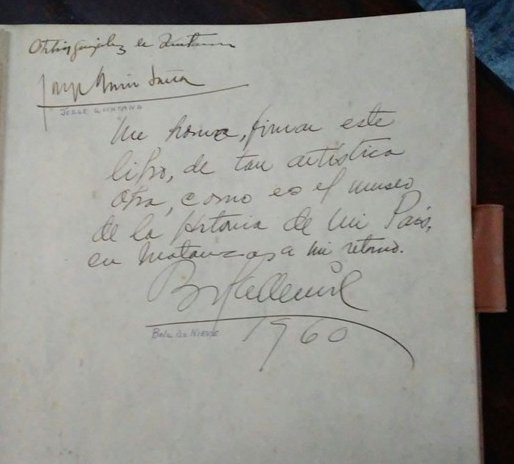 González de
Jorge
JORGE QUINTANA
Me honra, firmar este
libro, de tan artística
obra, como es el museo
de la Historia de Mi País,
en Matanzas a mi retorno.
Bola de Nieve
BOLA DE NIEVE
1960